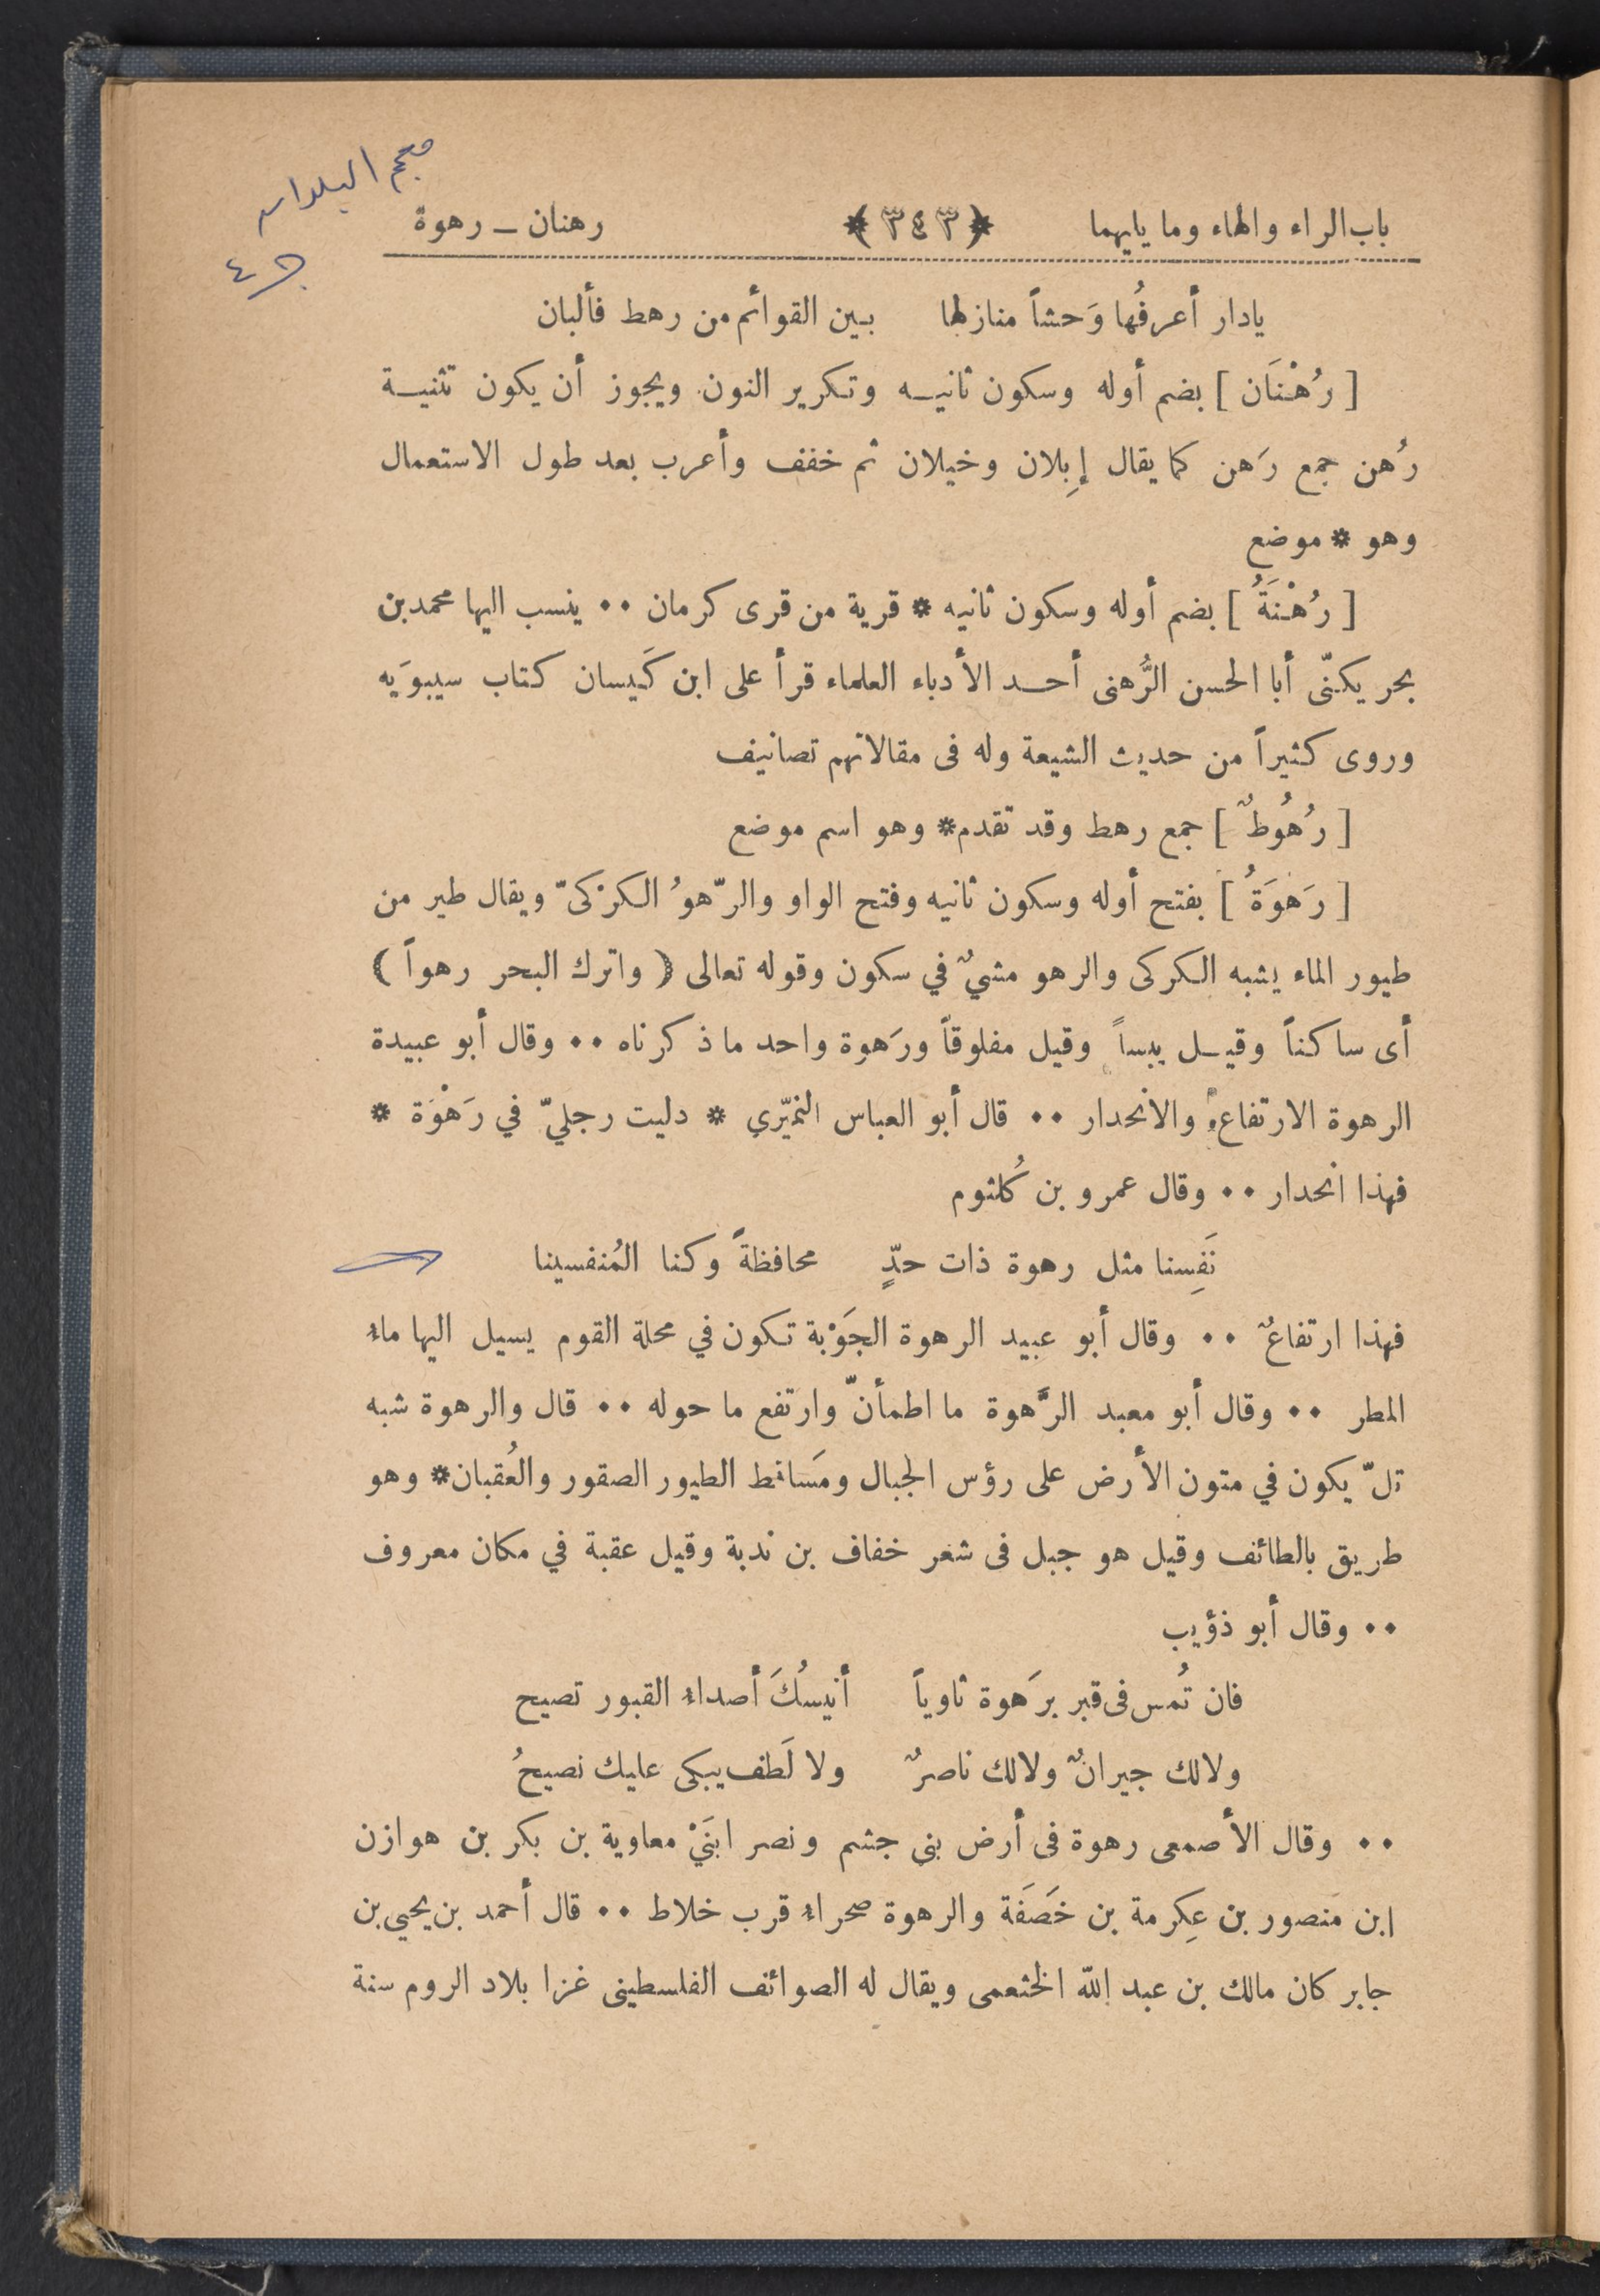 معجم البلدان
ج ٤
باب الراء والهاء وما يليهما ﴿٣٤٣﴾ رهنان ـ رهوة
يادار أعرفُها وَحشاً منازلها بين القوائم من رهط فألبان
[ رُهْنَان ] بضم أوله وسكون ثانيه وتكرير النون ويجوز أن يكون تثنية
رُهن جمع رَهن كما يقال إِبلان وخيلان ثم خفف وأعرب بعد طول الاستعمال
وهو * موضع
[ رُهْنَةُ ] بضم أوله وسكون ثانيه * قرية من قرى كرمان ٠٠ ينسب اليها محمد بن
بحر يكنّى أبا الحسن الرُّهنى أحد الأدباء العلماء قرأ على ابن كَيسان كتاب سيبوَيه
وروى كثيراً من حديث الشيعة وله فى مقالاتهم تصانيف
[ رُهُوطٌ ] جمع رهط وقد تقدم * وهو اسم موضع
[ رَهوَةُ ] بفتح أوله وسكون ثانيه وفتح الواو والرّهوُ الكرْكىّ ويقال طير من
طيور الماء يشبه الكركى والرهو مشيٌ في سكون وقوله تعالى ( واترك البحر رهواً )
أى ساكناً وقيل يبساً وقيل مفلوقاً ورَهوة واحد ما ذكرناه ٠٠ وقال أبو عبيدة
الرهوة الارتفاع والانحدار ٠٠ قال أبو العباس النميّري * دليت رجليّ في رَهْوَة *
فهذا انحدار ٠٠ وقال عمرو بن كُلثوم
نَفِسنا مثل رهوة ذات حدٍّ محافظةً وكنا المُنفسينا
فهذا ارتفاعٌ ٠٠ وقال أبو عبيد الرهوة الجَوْبة تكون في محلة القوم يسيل اليها ماء
المطر ٠٠ وقال أبو معبد الرَّهوة ما اطمأنّ وارتفع ما حوله ٠٠ قال والرهوة شبه
تلّ يكون في متون الأرض على رؤس الجبال ومَساقط الطيور الصقور والعُقبان * وهو
طريق بالطائف وقيل هو جبل فى شعر خفاف بن ندبة وقيل عقبة في مكان معروف
٠٠ وقال أبو ذؤيب
فان تُمس فى قبر برَهوة ثاوياً أنيسُكَ أصداء القبور تصيح
ولالك جيرانٌ ولالك ناصرٌ ولا لَطف يبكى عليك نصيحُ
٠٠ وقال الأصمعى رهوة فى أرض بنى جشم ونصر ابنَيْ معاوية بن بكر بن هوازن
ابن منصور بن عِكرمة بن خَصَفَة والرهوة صحراء قرب خلاط ٠٠ قال أحمد بن يحيي بن
جابر كان مالك بن عبد الله الخثعمى ويقال له الصوائف الفلسطينى غزا بلاد الروم سنة